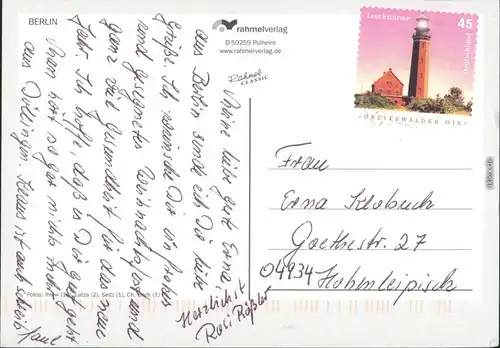 BERLIN
rahmelverlag
D-50259 Pulheim
www.rahmelverlag.de
Rahmel
CLASSIC
Leuchttürme
45
Deutschland
GREIFSWALDER OIE
Meine liebe gute Erna,
aus Berlin sende ich Dir liebe
Grüße. Ich wünsche Dir ein frohes
und gesegnetes Weihnachtsfest und
ganz viel Gesundheit für das neue
Jahr. Ich hoffe, daß es Dir gut geht
Man hört so gar nichts mehr
aus Döllingen. Klaus ist auch schreib
faul
Herzlichst
Rosi Rößler
Frau
Erna Klobuch
Goethestr. 27
04934 Hohenleipisch
Fotos: (2), Seitz (1), Ch. (1)